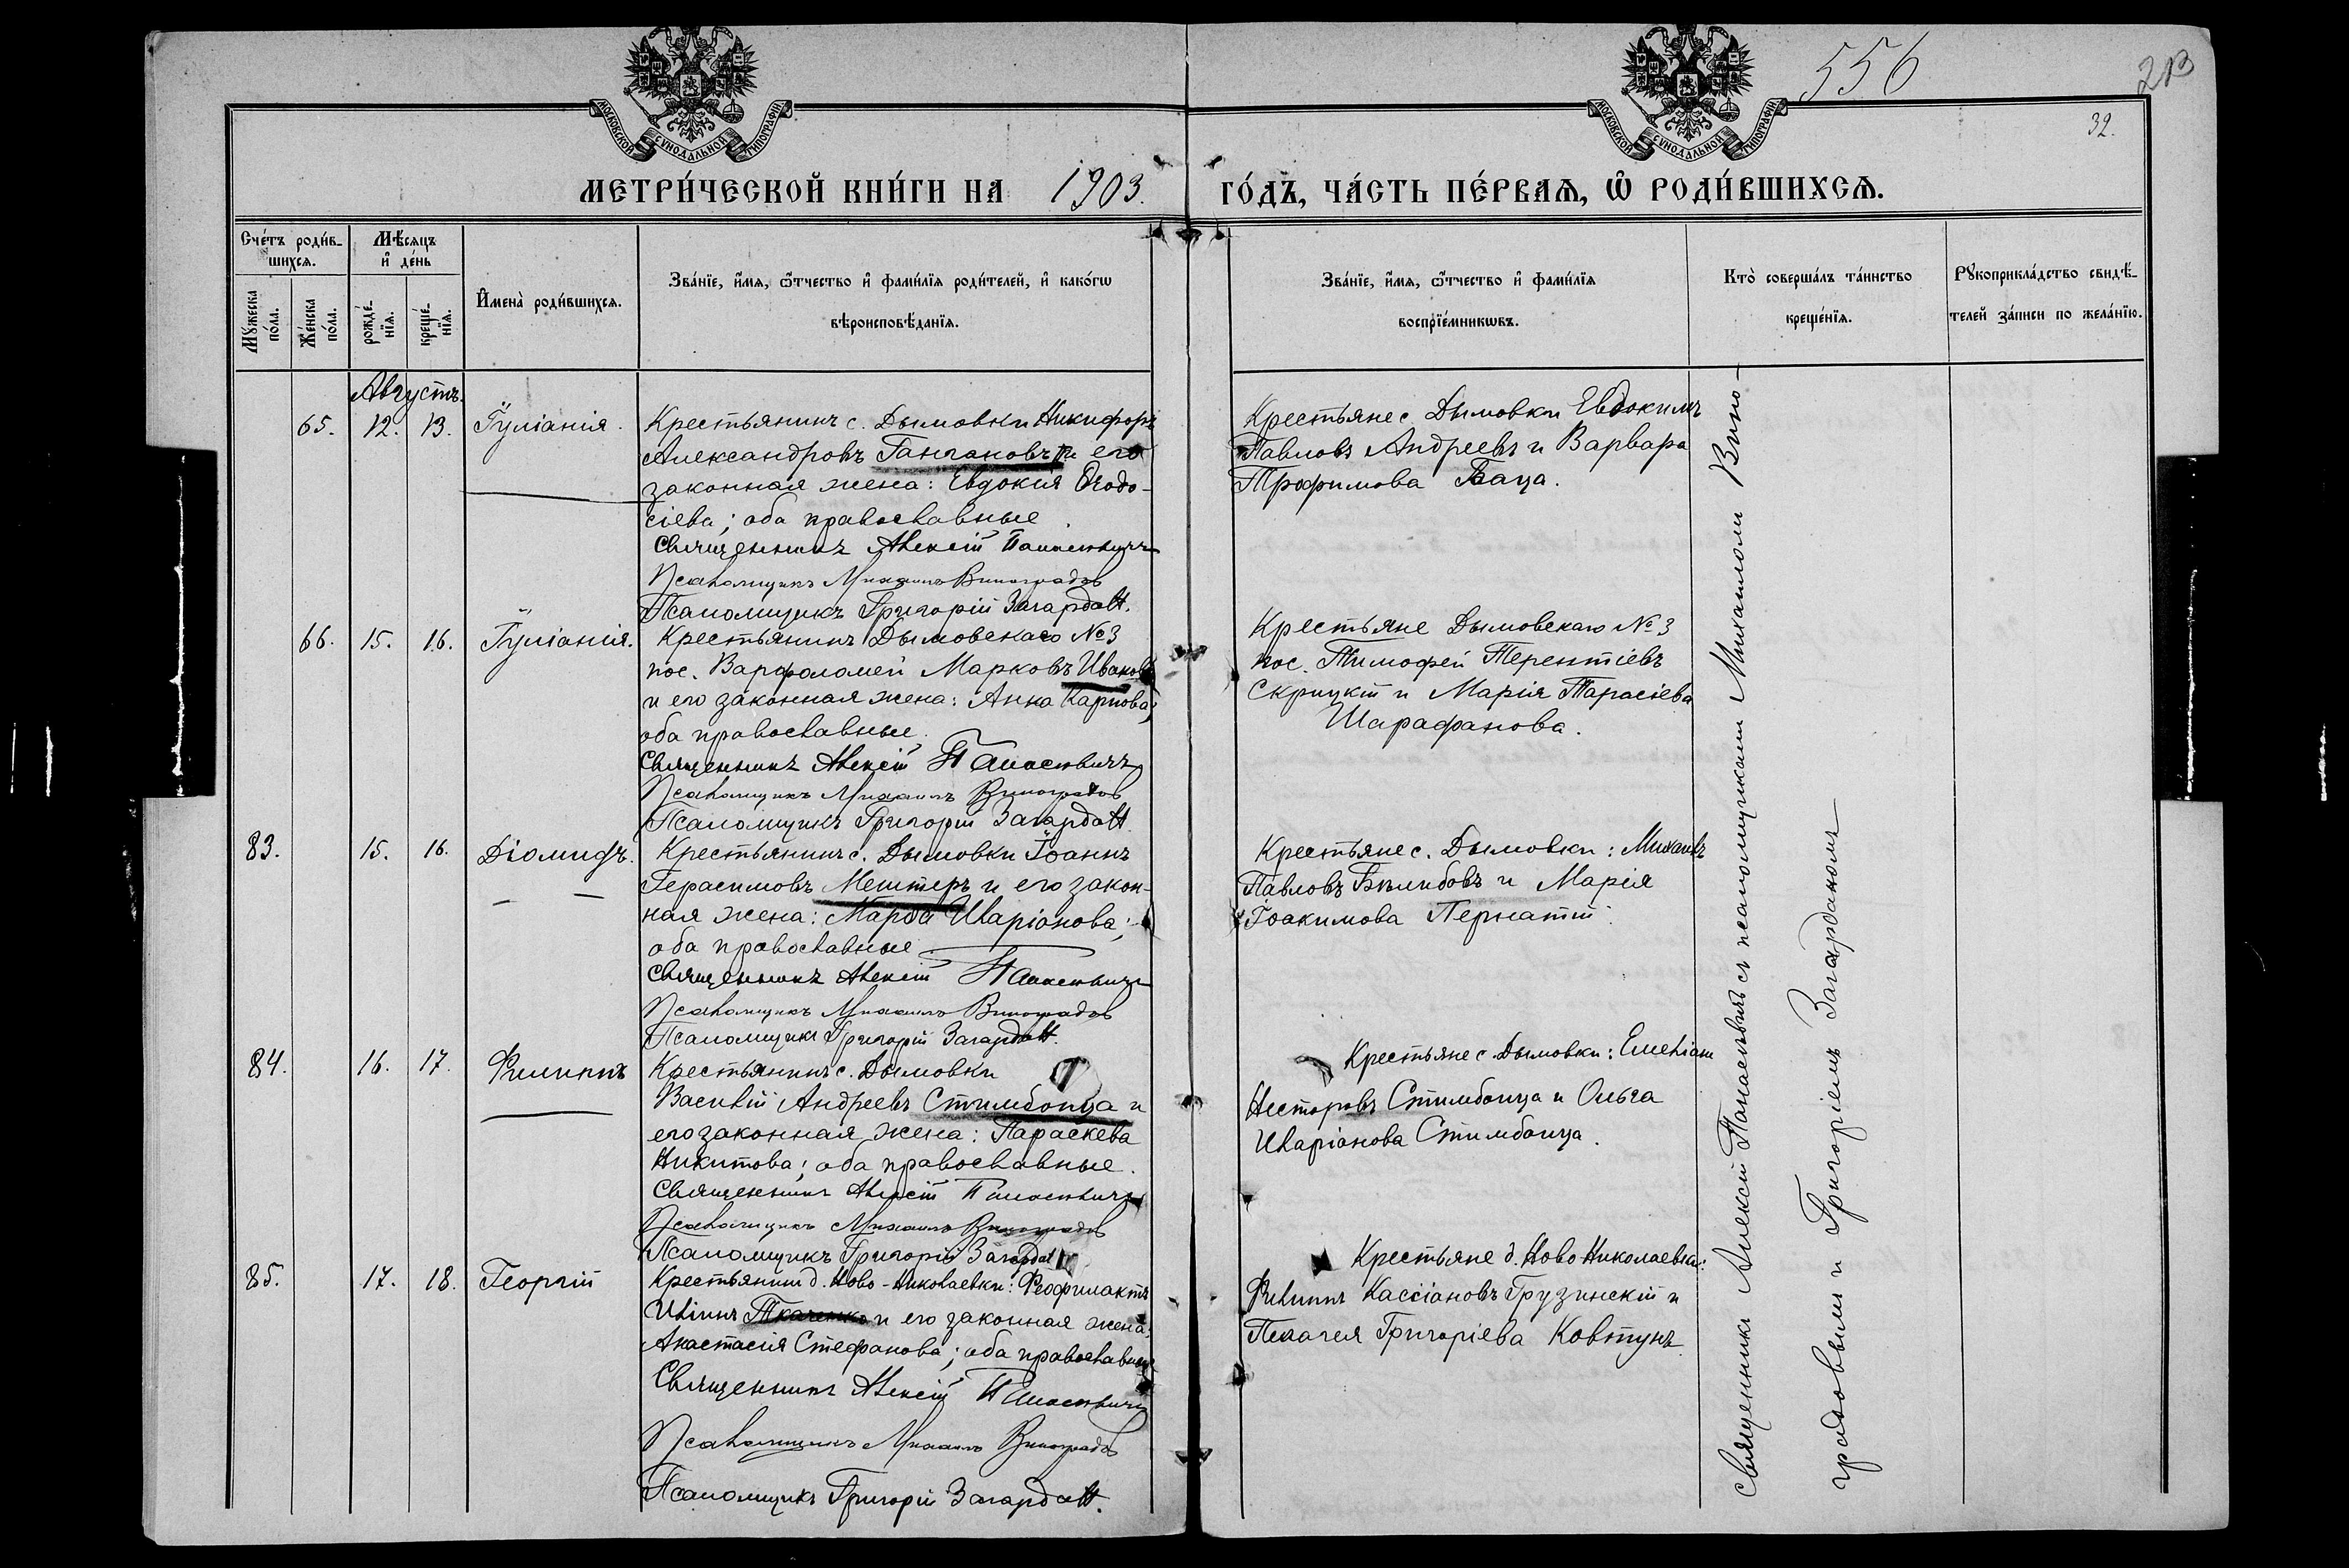 556
213
32.
МОСКОВСКОЙ СѴНОДАЛЬНОЙ ТИПОГРАФІИ
МОСКОВСКОЙ СѴНОДАЛЬНОЙ ТИПОГРАФІИ
МЕТРИ́ЧЕСКОЙ КНИ́ГИ НА 1903. ГО́ДЪ, ЧА́СТЬ ПЕ́РВАѦ, Ѡ҆ РОДИ́ВШИХСѦ.
Сче́тъ роди́в-
шихсѧ.
Мꙋ́жеска по́ла.
Же́нска по́ла.
Мѣ́сяцъ
и҆ де́нь
рожде́-
нїѧ.
креще́-
нїѧ.
И҆мена̀ роди́вшихсѧ.
Зва́нїе, и҆́мѧ, ѻ҆́тчество и҆ фами́лїѧ роди́телей, и҆ како́гѡ
вѣроисповѣ́данїѧ.
Зва́нїе, и҆́мѧ, ѻ҆́тчество и҆ фами́лїѧ
воспрїе́мникѡвъ.
Кто̀ соверша́лъ та́инство
креще́нїѧ.
Рꙋкоприкла́дство свидѣ́-
телей за́писи по жела́нїю.
Августъ.
65. 12. 13. Іуліанія.
Крестьянинъ с. Дымовки Никифоръ
Александровъ и его
законная жена: Евдокія Ѳеодо-
сіева; оба православные.
Священникъ Алексій Панасевичъ
Псаломщикъ Михаилъ Виноградовъ
Псаломщикъ Григорій Загардан.
Крестьяне с. Дымовки Евдокимъ
Павловъ Андреевъ и Варвара
Трофимова Баца.
66. 15. 16. Іуліанія.
Крестьянинъ Дымовскаго №3
пос. Варфоломей Марковъ Ивановъ
и его законная жена: Анна Карпова;
оба православные.
Священникъ Алексій Панасевичъ
Псаломщикъ Михаилъ Виноградовъ
Псаломщикъ Григорій Загардан.
Крестьяне Дымовскаго №3
пос. Тимофей Терентіевъ
Скрицкій и Марія Тарасіева
Шарафанова.
83. 15. 16. Діомидъ.
Крестьянинъ с. Дымовки Іоаннъ
Герасимовъ Мештеръ и его закон-
ная жена: Марѳа Иларіонова;
оба православные
Священникъ Алексій Панасевичъ
Псаломщикъ Михаилъ Виноградовъ
Псаломщикъ Григорій Загардан.
Крестьяне с. Дымовки: Михаилъ
Павловъ и Марія
Іоакимова Пернатій.
84. 16. 17. Филиппъ
Крестьянинъ с. Дымовки
Василій Андреевъ Стымбоица и
его законная жена: Параскева
Никитова; оба православные.
Священникъ Алексій Панасевичъ
Псаломщикъ Михаилъ Виноградовъ
Псаломщикъ Григорій Загардан
Крестьяне с. Дымовки: Емеліанъ
Несторовъ Стимбоица и Ольга
Иларіонова Стимбоица.
85. 17. 18. Георгій
Крестьянинъ д. Ново-Николаевки: Феофилактъ
Иліинъ Ткаченко и его законная жена:
Анастасія Стефанова; оба православные
Священникъ Алексій Панасевичъ
Псаломщикъ Михаилъ Виноградовъ
Псаломщикъ Григорій Загардан.
Крестьяне д. Ново Николаевки:
Филиппъ Кассіановъ Грузинскій и
Пелагея Григоріева Ковтунъ.
Священникъ Алексій Панасевичъ съ псаломщиками Михаиломъ Вино-
градовымъ и Григоріемъ Загарданомъ